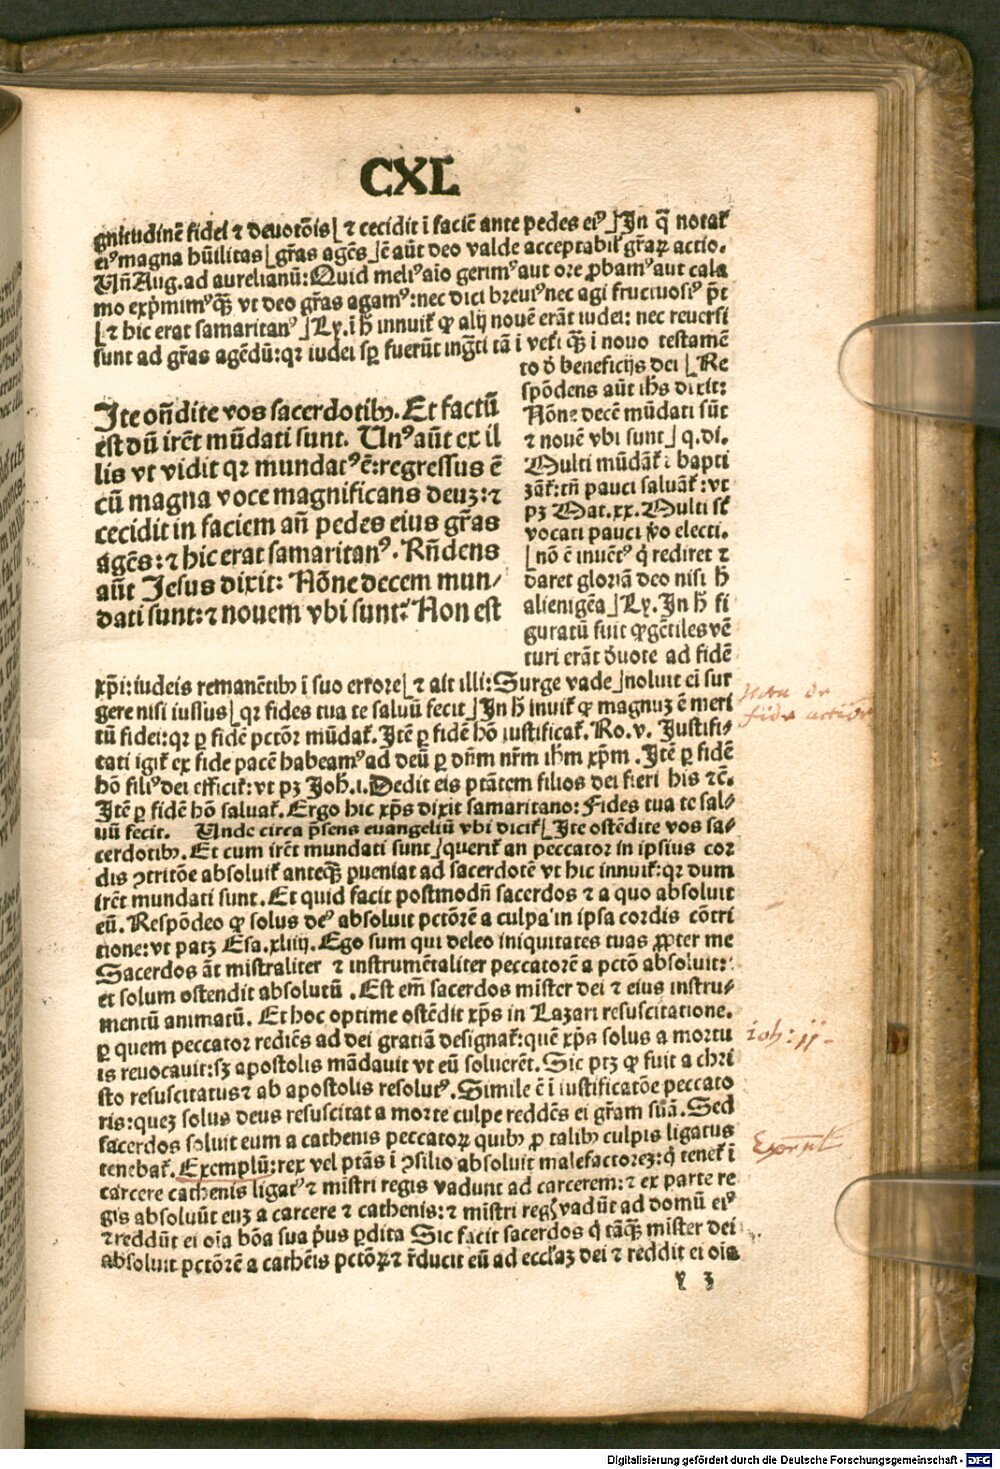 CXL
gnitudinē fidei ⁊ deuotōis⌊ ⁊ cecidit ī faciē ante pedes eiꝰ⌋In q̄ notat᷑
eiꝰ magna hūilitas⌊gr̄as agēs⌋ē aūt deo valde acceptabil᷑ gr̄aꝝ actio.
Vn̄ Aug. ad aurelianū: Quid meliꝰ aīo gerimꝰ aut ore ꝓbamꝰ aut cala
mo exp̄mimꝰ q̄ꝫ vt deo gr̄as agamꝰ: nec dici breuiꝰ nec agi fructuosiꝰ p̄t
⌊⁊ hic erat samaritanꝰ⌋Ly. ī h̄ innuit᷑ ꝙ alij nouē erāt iudei: nec reuersi
sunt ad gr̄as agēdū: qꝛ iudei sꝑ fuerūt ingr̄ti tā i vet᷑i q̄ꝫ i nouo testamē
to d̄ beneficijs dei ⌊Re
spōdens aūt ih̄s dixit:
Nōne decē mūdati sūt
⁊ nouē vbi sunt⌋ q.di.
Multi mūdāt᷑ ī bapti
zāt᷑: tn̄ pauci saluāt᷑: vt
pꝫ Mat.xx. Multi st̄
vocati pauci v̄o electi.
⌊nō ē inuētꝰ q̇ rediret ⁊
daret gloriā deo nisi h̄
alienigēa⌋Ly. In h̄ fi
guratū fuit ꝙ gētiles vē
turi erāt d̄uote ad fidē
Ite on̄dite vos sacerdotibꝫ. Et factū
est dū irēt mūdati sunt. Vnꝰ aūt ex il
lis vt vidit qꝛ mundatꝰ ē: regressus ē
cū magna voce magnificans deuꝫ: ⁊
cecidit in faciem an̄ pedes eius gr̄as
agēs: ⁊ hic erat samaritanꝰ. Rn̄dens
aūt Jesus dixit: Nōne decem mun⸗
dati sunt: ⁊ nouem vbi sunt? Non est
xp̄i: iudeis remanētibꝫ ī suo errore⌊ ⁊ ait illi: Surge vade⌋noluit ei sur
gere nisi iussus⌊qꝛ fides tua te saluū fecit⌋In h̄ inuit᷑ ꝙ magnuꝫ ē meri
tū fidei: qꝛ ꝑ fidē pctōr mūdat᷑. Itē ꝑ fidē hō iustificat᷑. Ro.v. Iustifi⸗
cati igit᷑ ex fide pacē habeamꝰ ad deū ꝑ dn̄m nr̄m ih̄m xp̄m. Itē ꝑ fidē
hō filiꝰ dei efficit᷑: vt pꝫ Joh̄.i. Dedit eis ptātem filios dei fieri his ⁊c̄.
Itē ꝑ fidē hō saluat᷑. Ergo hic xp̄s dixit samaritano: Fides tua te sal⸗
uū fecit. Unde circa p̄sens euangeliū vbi dicit᷑⌊Ite ostēdite vos sa⸗
cerdotibꝫ. Et cum irēt mundati sunt⌋querit᷑ an peccator in ipsius cor
dis ꝯtritōe absoluit᷑ anteq̄ꝫ ꝑueniat ad sacerdotē vt hic innuit᷑: qꝛ dum
irēt mundati sunt. Et quid facit postmodū sacerdos ⁊ a quo absoluit
eū. Respōdeo ꝙ solus deꝰ absoluit pctōrē a culpa in ipsa cordis cōtri
tione: vt patꝫ Esa.xliiij. Ego sum qui deleo iniquitates tuas ꝓpter me
Sacerdos āt mīstraliter ⁊ instrumētaliter peccatorē a pctō absoluit:
et solum ostendit absolutū. Est em̄ sacerdos mīster dei ⁊ eius instru⸗
mentū animatū. Et hoc optime ostēdit xp̄s in Lazari resuscitatione.
ꝑ quem peccator rediēs ad dei gratiā designat᷑: quē xp̄s solus a mortu
is reuocauit: sꝫ apostolis mādauit vt eū soluerēt. Sic ptꝫ ꝙ fuit a chri
sto resuscitatus ⁊ ab apostolis resolutꝰ. Simile ē ī iustificatōe peccato
ris: queꝫ solus deus resuscitat a morte culpe reddēs ei gr̄am suā. Sed
sacerdos soluit eum a cathenis peccatoꝝ quibꝫ ꝓ talibꝫ culpis ligatus
tenebat᷑. Exemplū: rex vel ptās ī ꝯsilio absoluit malefactoreꝫ: q̇ tenet᷑ ī
carcere cathenis ligatꝰ ⁊ mīstri regis vadunt ad carcerem: ⁊ ex parte re
gis absoluūt euꝫ a carcere ⁊ cathenis: ⁊ mīstri regꝭ vadūt ad domū eiꝰ
⁊ reddūt ei oīa bōa sua p̄us ꝑdita Sic facit sacerdos q̇ tāq̄ꝫ mīster dei
absoluit pctōrē a cathēis pctōꝝ ⁊ r̄ducit eū ad eccl̄iaꝫ dei ⁊ reddit ei oīa
y 3
Nota de
fide
ioh: 11.
Digitalisierung gefördert durch die Deutsche Forschungsgemeinschaft - DFG